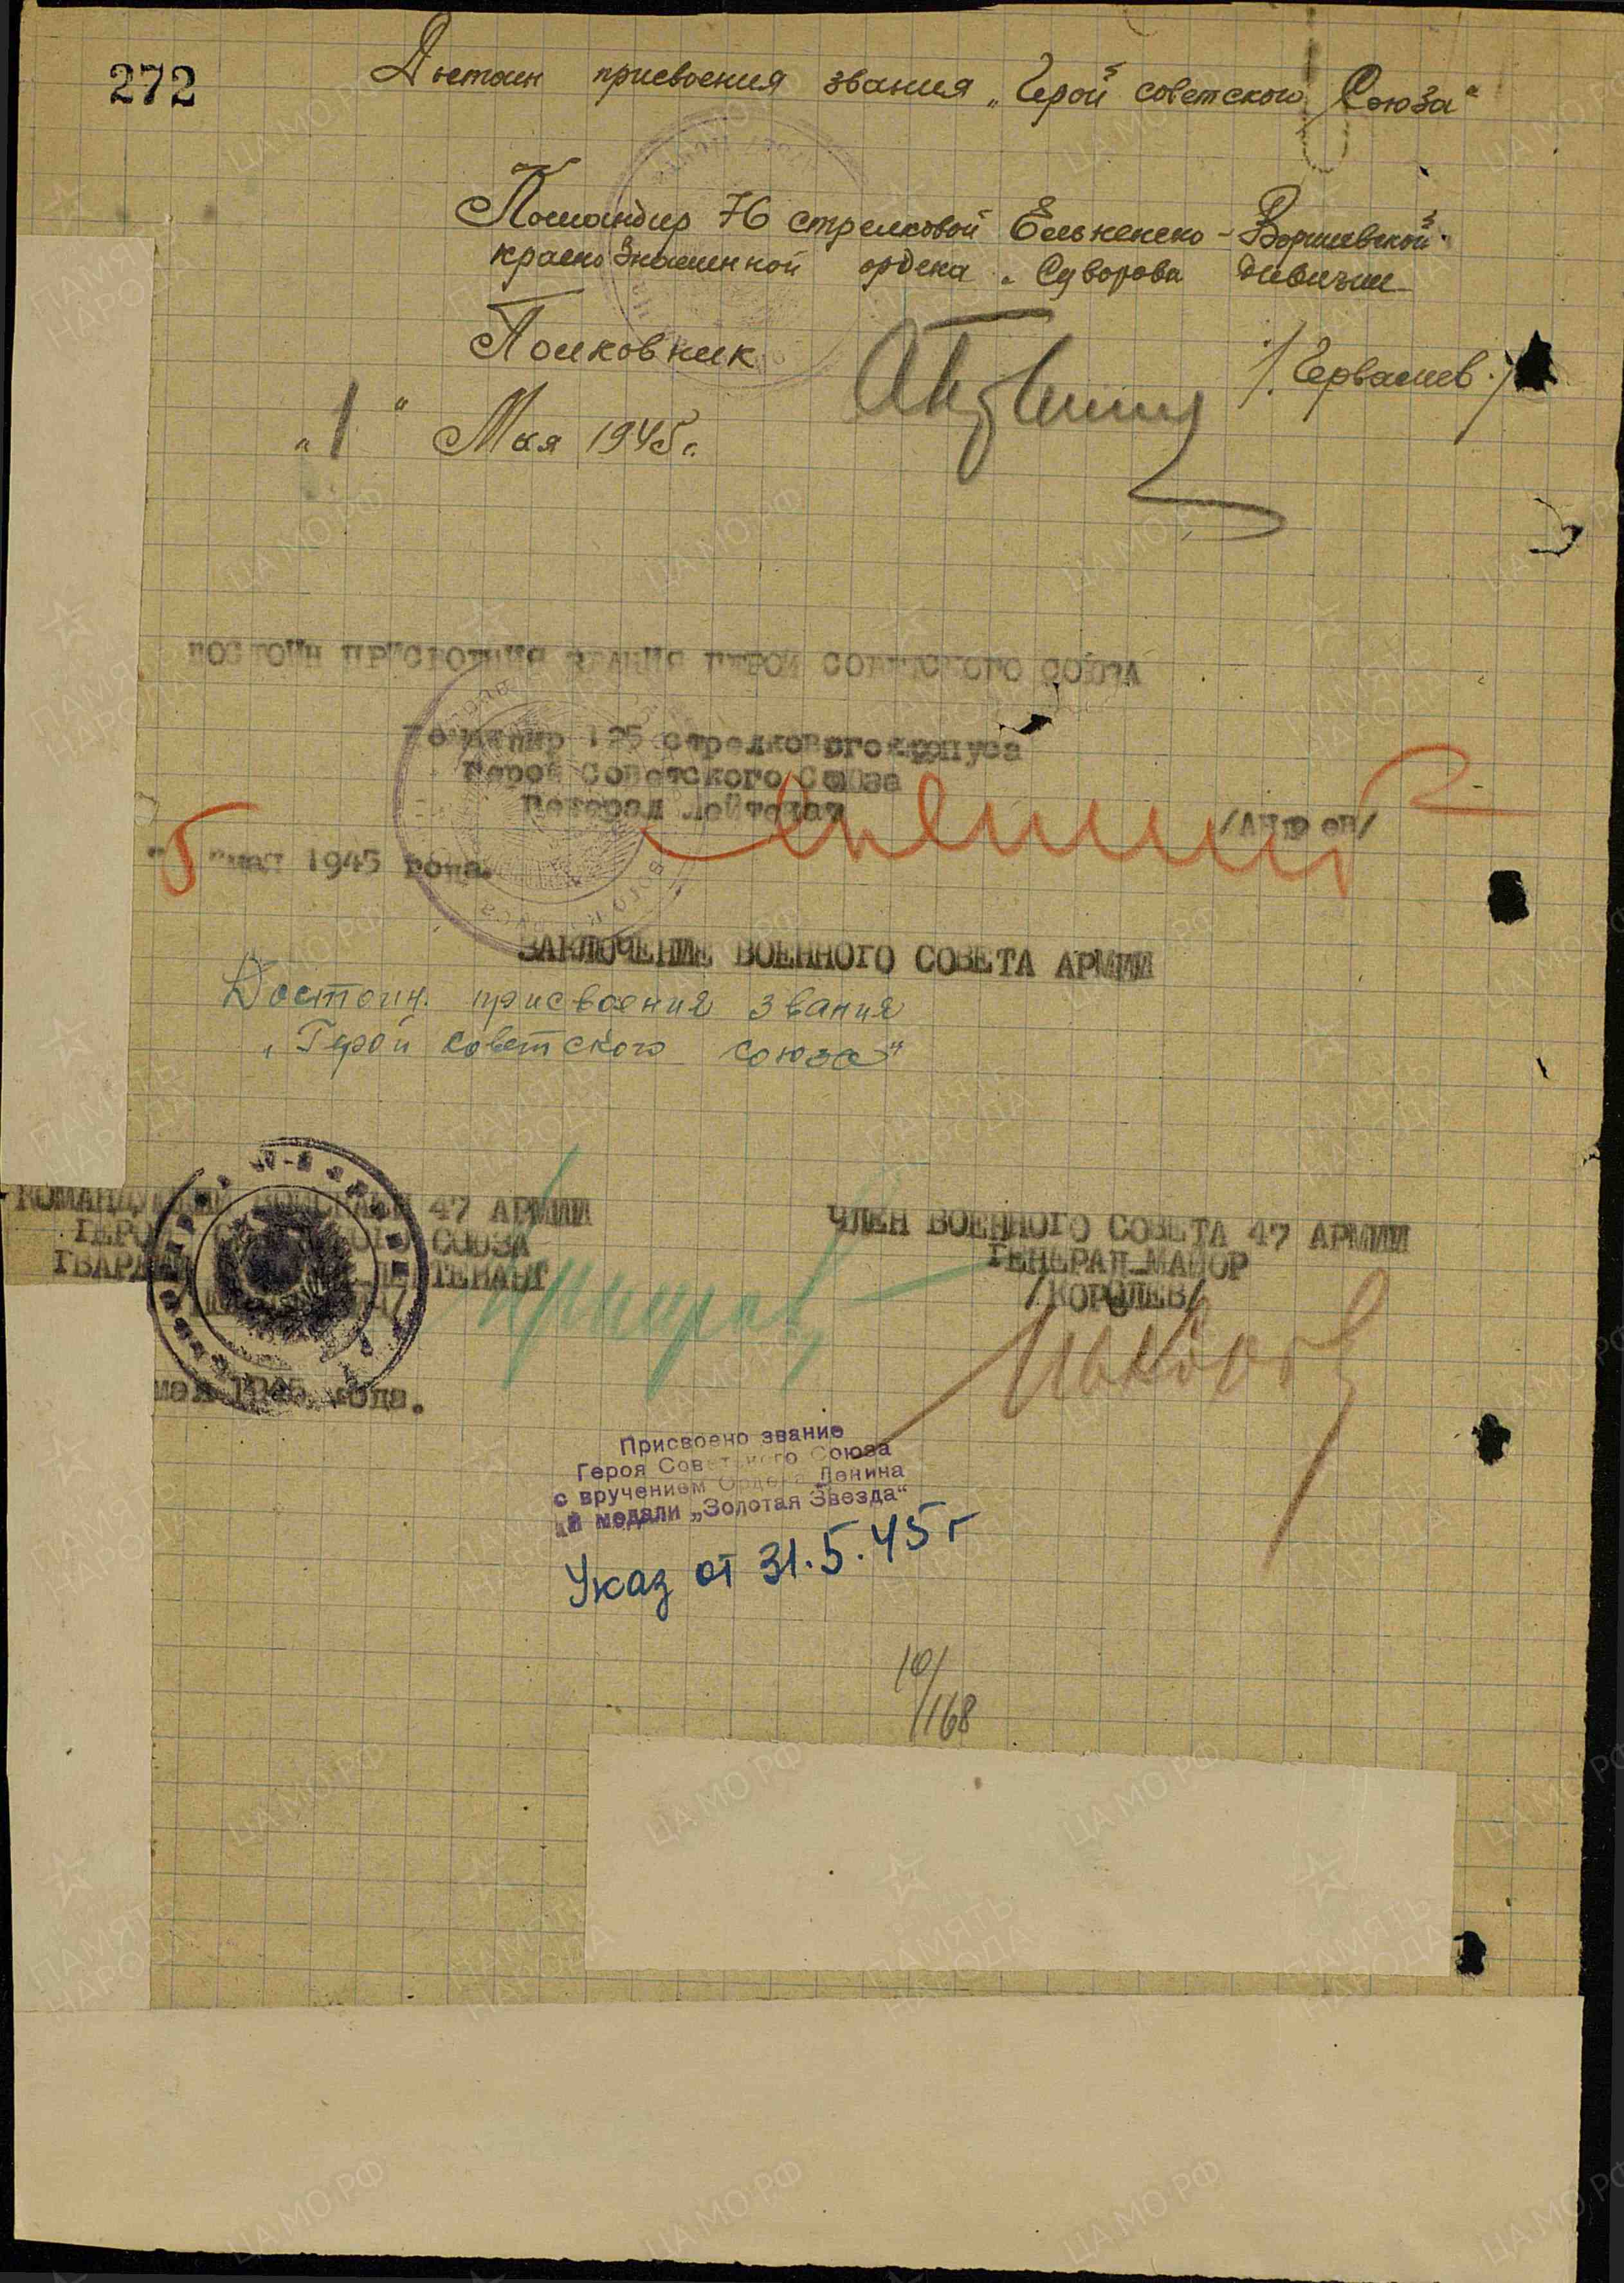 272
Достоин присвоения звания „Герой советского Союза“
Командир 76 стрелковой Ельненско-Варшавской
краснознаменной ордена Суворова дивизии
Полковник
/Гервасиев./
„1“ Мая 1945г.
ДОСТОИН ПРИСВОЕНИЯ ЗВАНИЯ ГЕРОЙ СОВЕТСКОГО СОЮЗА
Командир 125 стрелкового корпуса
Герой Советского Союза
Генерал Лейтенант
"5" мая 1945 года.
ЗАКЛЮЧЕНИЕ ВОЕННОГО СОВЕТА АРМИИ
Достоин присвоения звания
„Герой советского союза“
КОМАНДУЮЩИЙ ВОЙСКАМИ 47 АРМИИ
ГЕРОЙ СОЮЗА
ЛЕЙТЕНАНТ
мая 1945 года.
ЧЛЕН ВОЕННОГО СОВЕТА 47 АРМИИ
ГЕНЕРАЛ-МАЙОР
/КОРОЛЕВ/
Присвоено звание
Героя Советского Союза
с вручением Ордена Ленина
и медали „Золотая Звезда“
Указ от 31.5.45 г
10/
/168